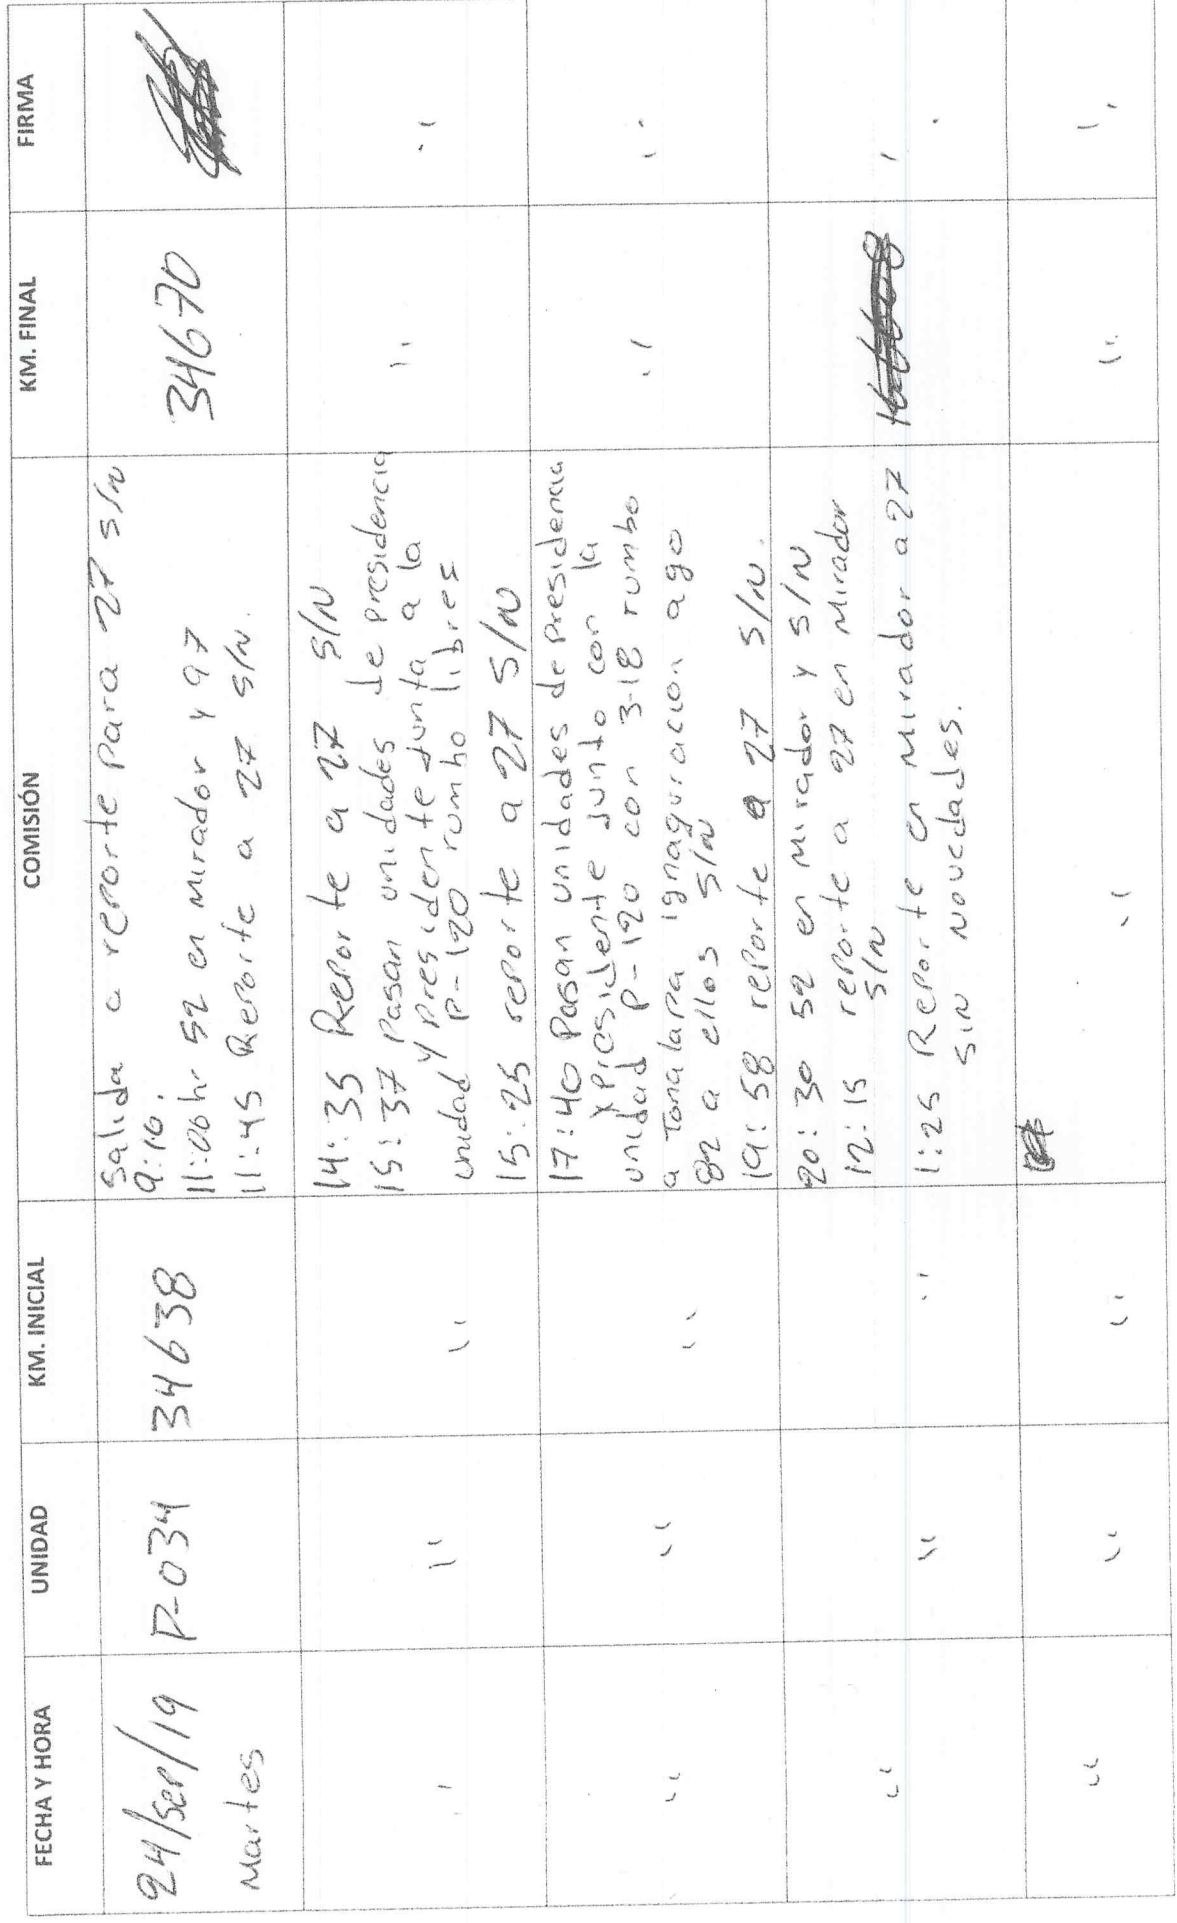 FECHA Y HORA UNIDAD KM. INICIAL COMISIÓN KM. FINAL FIRMA
24/sep/19 P-034 34638 34670
Martes
salida a reporte para 27 s/n
9:10.
11:06hr 52 en mirador y 97
11:45 Reporte a 27 s/n.
14:35 Reporte a 27 s/n
15:37 Pasan unidades de presidencia
y presidente junta a la
unidad P-120 rumbo libres
15:25 reporte a 27 s/n
17:40 Pasan unidades de presidencia
y presidente junto con la
unidad P-120 con 3-18 rumbo
a Tonalapa ignaguracion ago
82 a ellos s/n
19:58 reporte a 27 s/n.
20:30 52 en mirador y s/n
12:15 reporte a 27 en mirador
s/n
1:25 Reporte en mirador a 27
sin novedades.